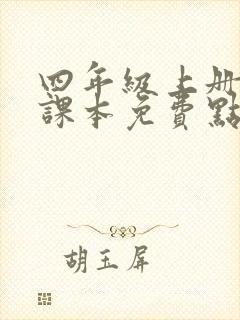 四年級上册
課本免費點
胡玉屏